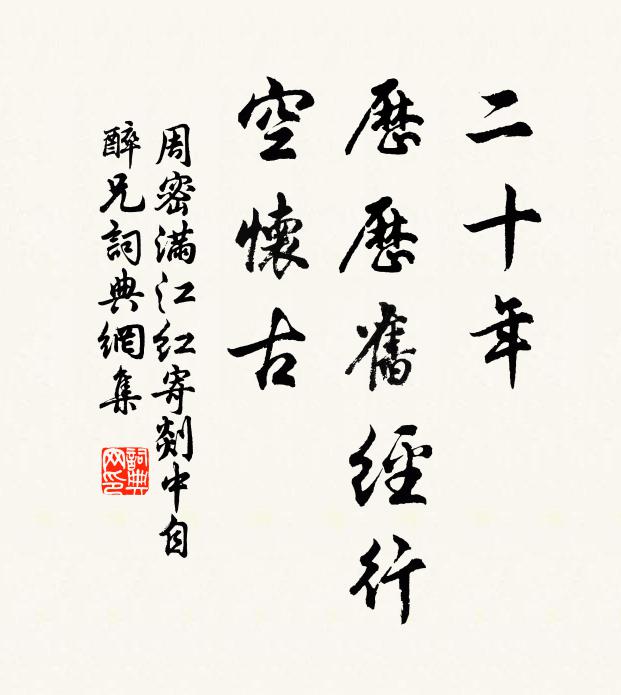 二十年
歷歷舊經行
空懷古
周密滿江紅寄剡中自
醉兄詞典網集
詞典网印